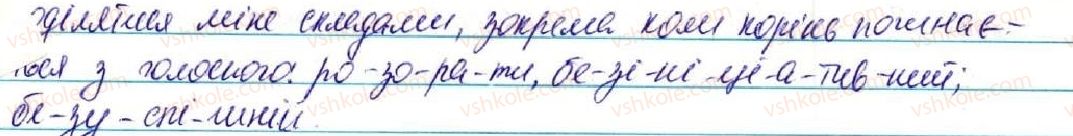 ділятися між складами, зокрема коли корінь починаєть-
ся з голосного: ро-зо-ра-ти, бе-зі-ні-ці-а-тив-ний,
бе-зу-спі-шний.